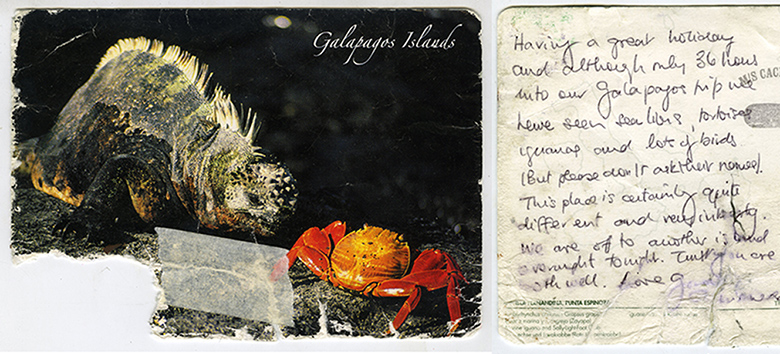 Galapagos Islands
Having a great holiday
and although only 36 hours
into our Galapagos trip we
have seen sealions, tortoises
iguanas and lots of birds
(But please don't ask their names).
This place is certainly quite
different and very interesting.
We are off to another island
overnight tonight. Trust you are
both well. Love
FERNANDINA, PUNTA ESPINOZA
marina y
iguana and Sally Lightfoot